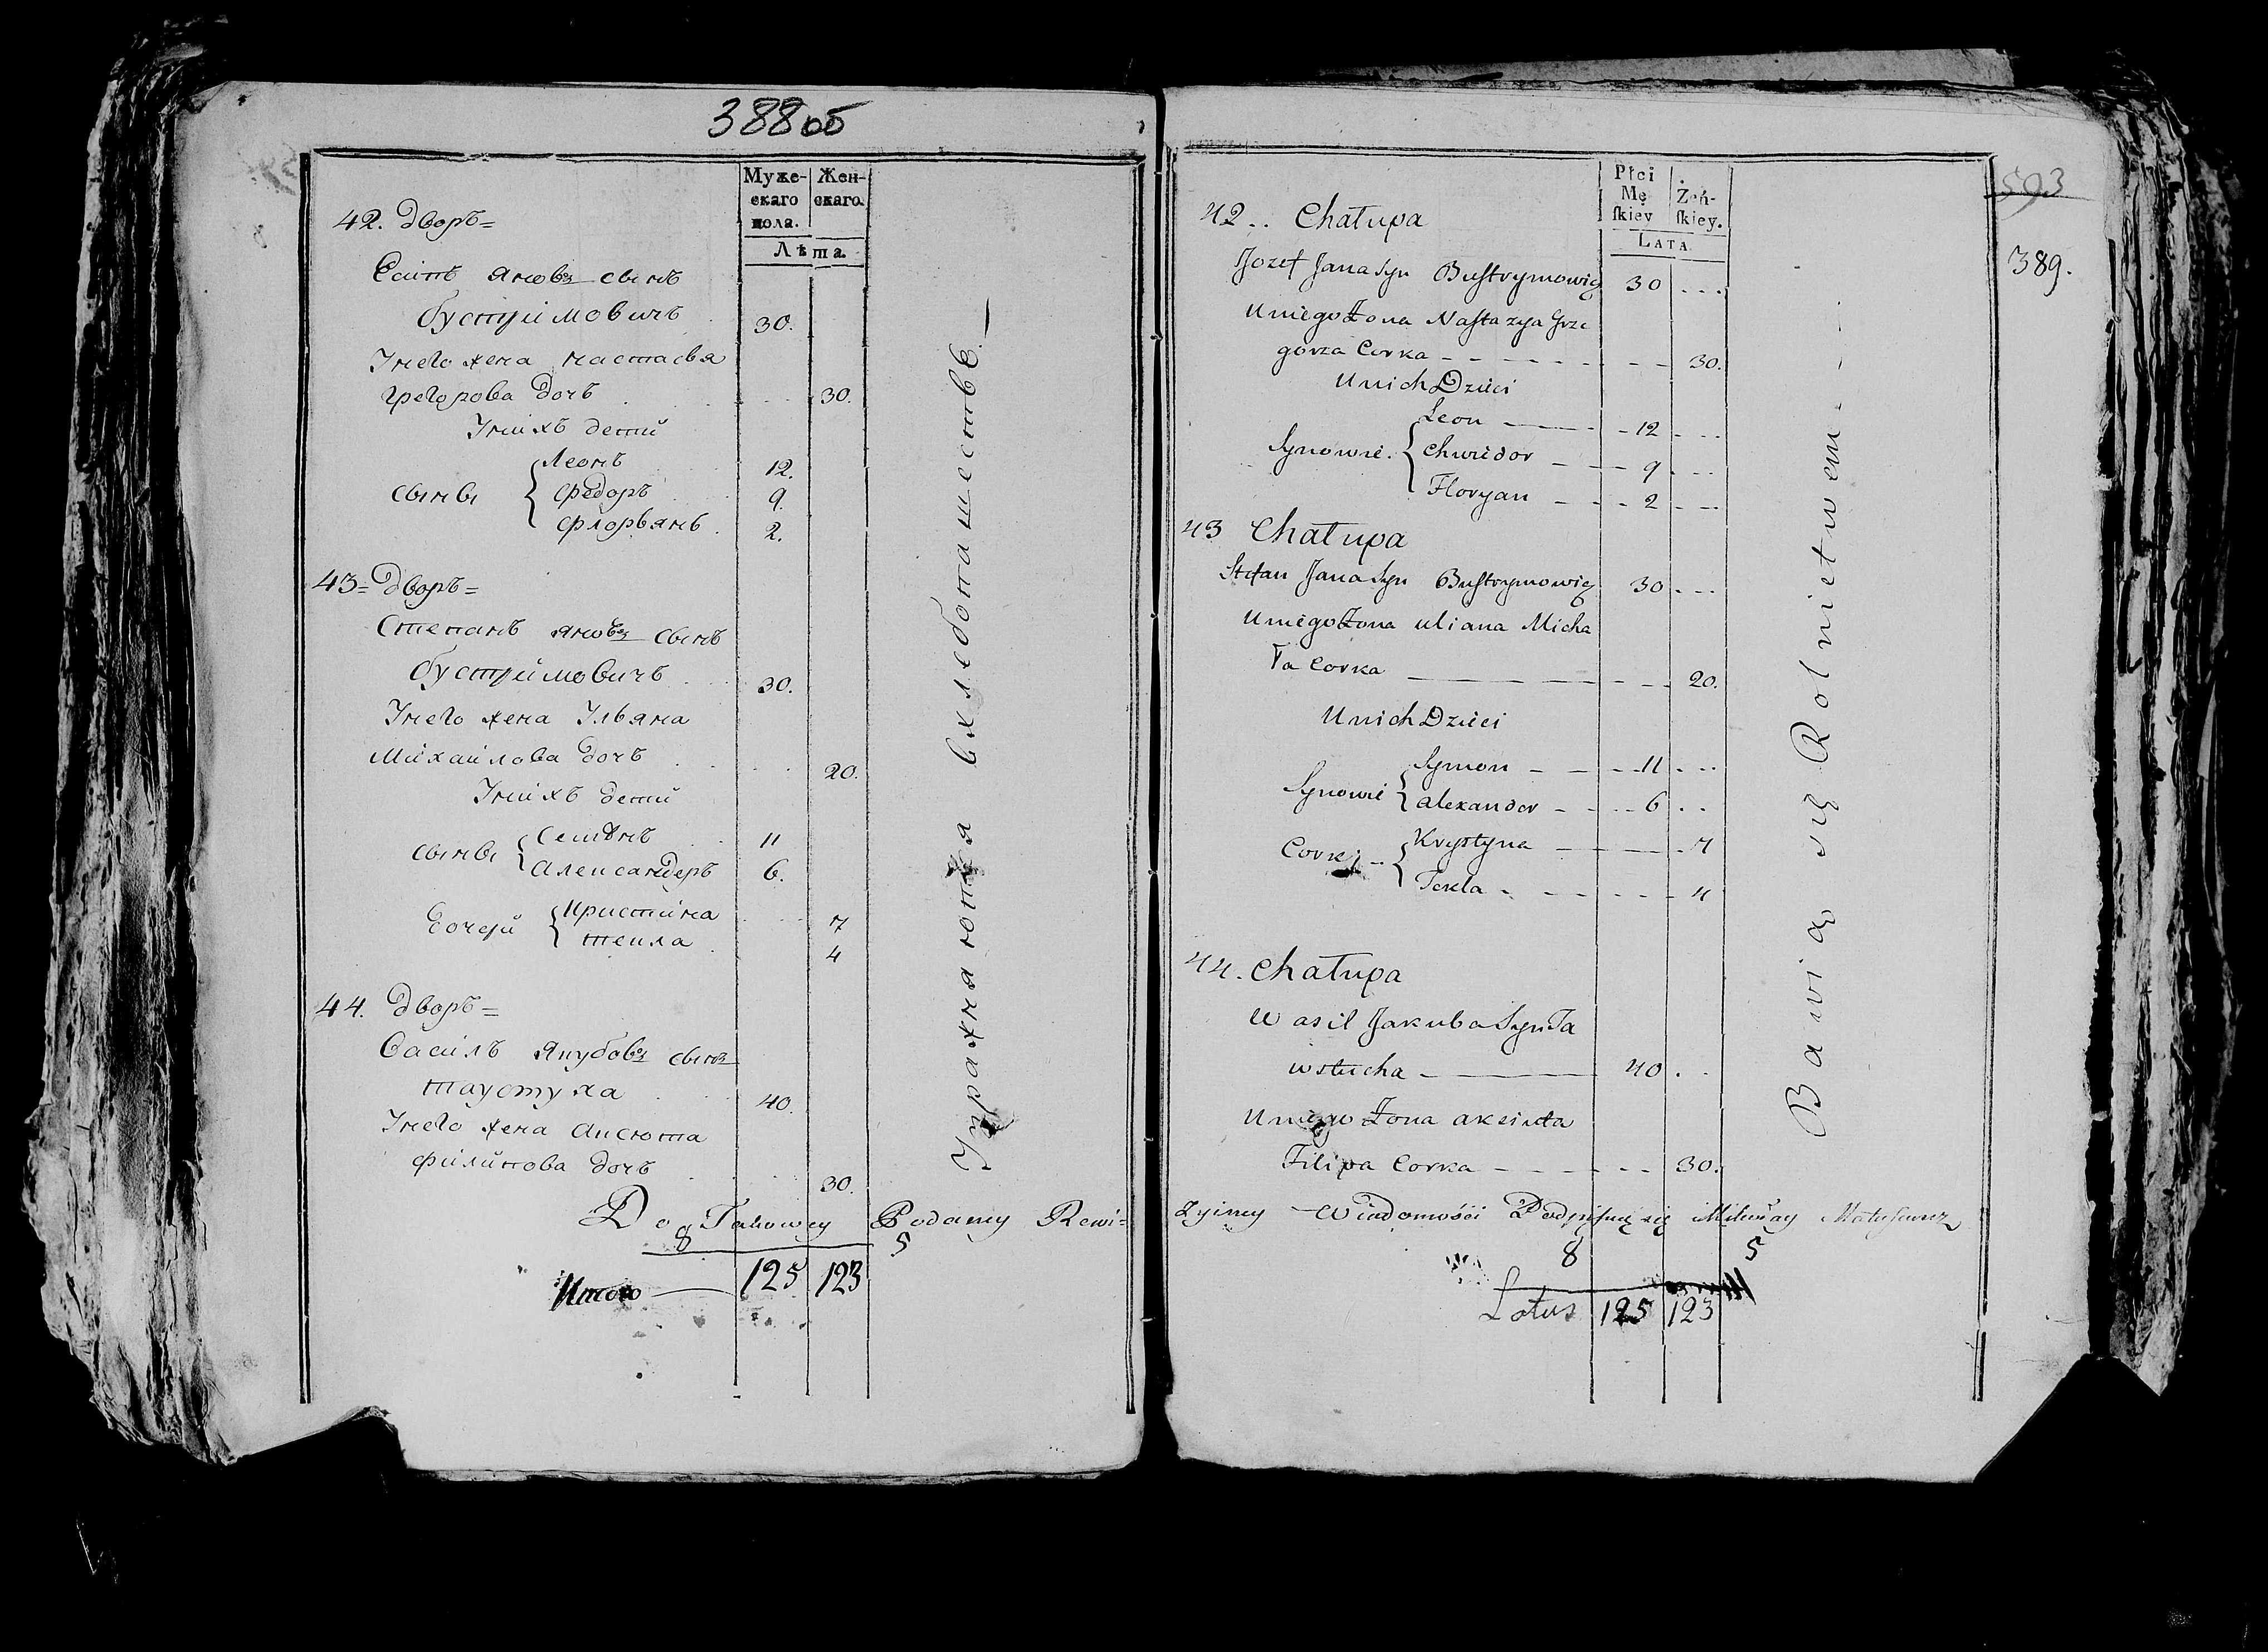 388 об
Муже-
скаго
пола.
Жен-
скаго.
Лѣта.
42. Дворъ=
Есипъ Яновъ сынъ
бустримовичъ 30.
Унего жена настасья
Грегорова дочъ 30.
Унихъ дети
сыны { Леонъ 12.
Федоръ 9.
Флорьянъ 2.
43= Дворъ=
Степанъ Яновъ сынъ
бустримовичъ 30.
Унего жена Ульяна
Михайлова дочъ 20.
Унихъ дети
сынъ { Семѣнъ 11
Александеръ 6.
дочери { кристина 7
текла 4
44. Дворъ=
Василъ Якубовъ сынъ
таустуха 40.
Унего жена Аксюта
филипова дочъ 30.
Упражняются вхлебопашестве. —
Do Takowey Podaney Rewi=
8 5
Итого — 125 123
593
389.
Płci
Mę
ſkiey
Żeń-
ſkiey.
LATA
42.. Chałupa
Jozef Jana Syn Buſtrymowicz 30 ...
Uniego Żona Naſtazya Grze
gorza Corka - - - - - - 30.
Unich Dzieci
Synowie. { Leon — - 12 - ..
Chwiedor — - 9 - ..
Floryan - - - 2 - ..
43 Chałupa
Stefan Jana Syn Buſtrymowicz 30 ...
Uniego Żona uliana Micha
ła Corka — — — - - 20.
Unich Dzieci
Synowie { Symon - - - 11 . ..
alexander - - - 6 . .
Corki .. { Krystyna — — - 7
Tekla - - - - - 4
44. Chałupa
Wasil Jakuba Syn Ta
wstucha — 40 . .
Uniego Żona aksiuta
Filipa Corka - - - - 30.
Bawią się Rolnictwem
Zyiney Wiadomości Podpiſuię się Mikołay Matuſewicz
8 5
Latus 125 123